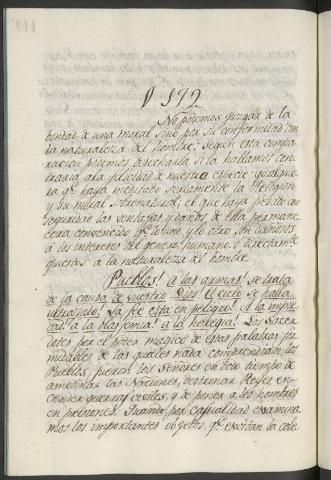 § 192.
No podemos juzgar de la
bondad de una moral sino por su conformidad con
la naturaleza del hombre; segun esta compa
racion podemos desecharla si la hallamos con
traria a la felicidad de nuestra especie: qualquie
ra qe. haya meditado seriamente la Religion
y su moral sobrenatural; el que haya pesado con
seguridad las ventajas y daños de ella perman
cera convencido qe. lo uno y lo otro son dañosos
a los intereses del genero humano, o directamte.
opuestos a la naturaleza del hombre.
Pueblos! a las armas! se trata
de la causa de vuestro Dios! el cielo se halla
ultrajado! La fee esta en peligro! A la impie
dad! a la blasfemia! a la heregia! Los Sacer
dotes por el poder magico de estas palabras for
midables de las quales nada comprendian los
Pueblos, fueron los Señores en todo tiempo de
amotinar las Naciones, destronar Reyes, en
cender guerras civiles, y de poner a los hombres
en prisiones. Quando por casualidad examina
mos los importantes objetos, qe. excitan la cole